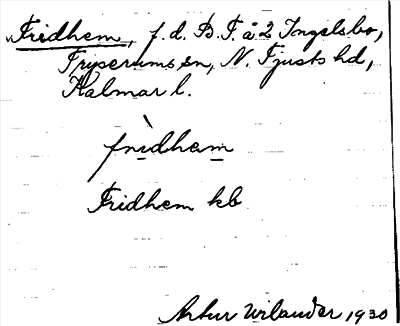 Fridhem, f. d. B. T. å 2 Ingelsbo,
Tryserums sn, N. Tjusts hd,
Kalmar l.
fridhem
Fridhem kb
Artur Wilander 1930